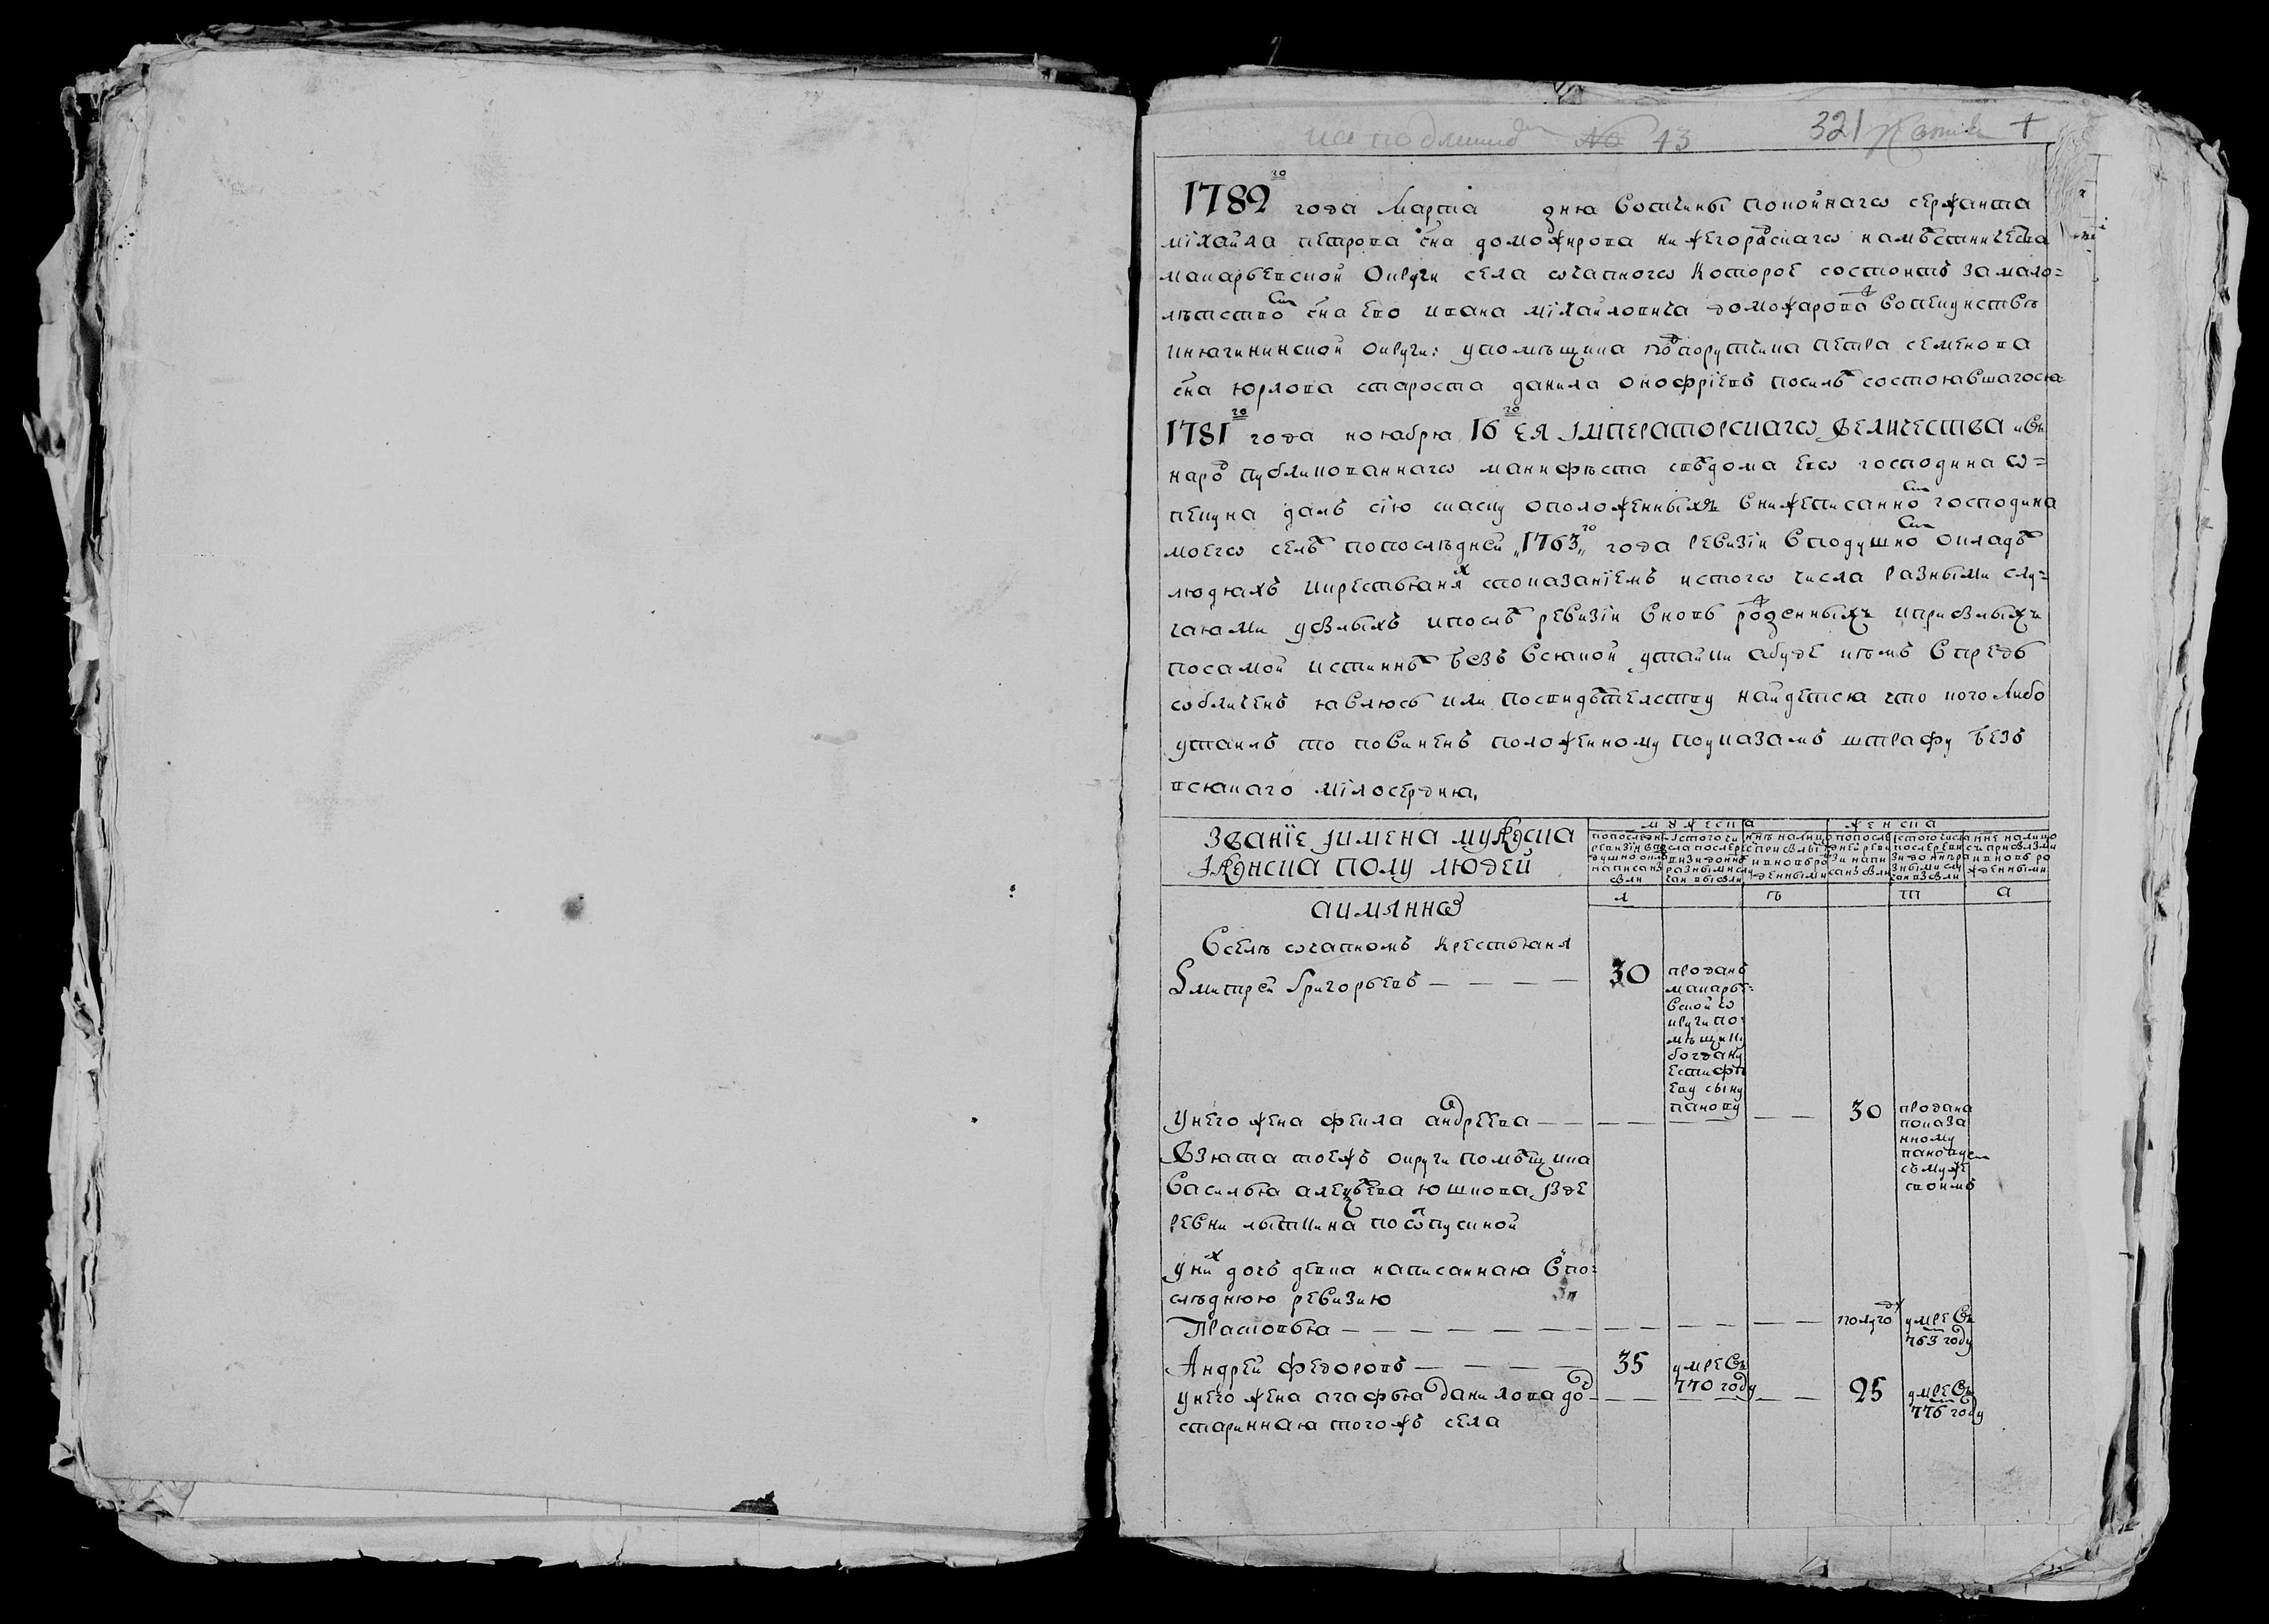 на подлинной № 13 321 Копия +
1782го года марта дню вотчины покойнаго сержанта
міхайла петрова сна доможирова нижегороцкаго намѣстничества
макарьевской округи села очапного которое состоитъ за мало=
лѣтствомъ сна ево ивана міхайловича доможарова вопекунствѣ
княгининской округи: у помѣщика подпорутчика петра семенова
сна юрлова староста данила онофріевъ посилѣ состоявшагося
1781го года ноября 16го ЕЯ ІМПЕРАТОРСКАГО ВЕЛИЧЕСТВА ивъ
народ публикованнаго манифѣста свѣдома ево господина о=
пекуна далъ сію скаску ополоѣженныхъ внижеписанномъ господина
моего селѣ попослѣдней „1763„го года ревизіи вподушномъ окладѣ
людяхъ икрестьянях споказаніемъ истого числа разными слу=
чаями убылыхъ ипослѣ ревизіи вновь рожденныхъ иприбылыхъ
посамой истиннѣ безъ всякой утайки абуде вчемъ впредь
обличенъ явлюсь или посвидѣтелству найдется что кого либо
утаилъ то повиненъ положенному поуказамъ штрафу безъ
всякаго мілосердия.
званіе іимена мужеска мужеска женска
іженска полу людей
попоследней ревизіи вподушномъ окладѣ написанъ были истого числа послѣ ревизи донынѣ разными случаи выбыли ннѣ налицо съприбылыми ивновьрожденными попоследней ревизи написанъ были истого числа послѣ ревизи донынѣ разными случаи выбыли ннѣ налицо съприбылыми ивновь рожденными
л ѣ т а
аимянно
Вселѣ очапномъ крестьяня
Дмитрей Григорьевъ — — — — 30 проданъ
макарье=
вской о
круги по=
мѣщику
богдану
естифѣ
еву сыну
панову
унего жена фекла андреева — — — — — — 30 продана
показа
нному
панову
съмуже
своимъ
Взята тоежъ округи помѣщика
Василья алексѣева юшкова, зде
ревни лыткина поотпускной
уних дочь девка написанная впо=
слѣднюю ревизию
Прасковья — — — — — — — — полуго умре въ
763 году
Андрей федоровъ — — — — 35 умре въ
770 году
унего жена агафья данилова — — — — 25 умре въ
776 году
стариннаю тогожъ села